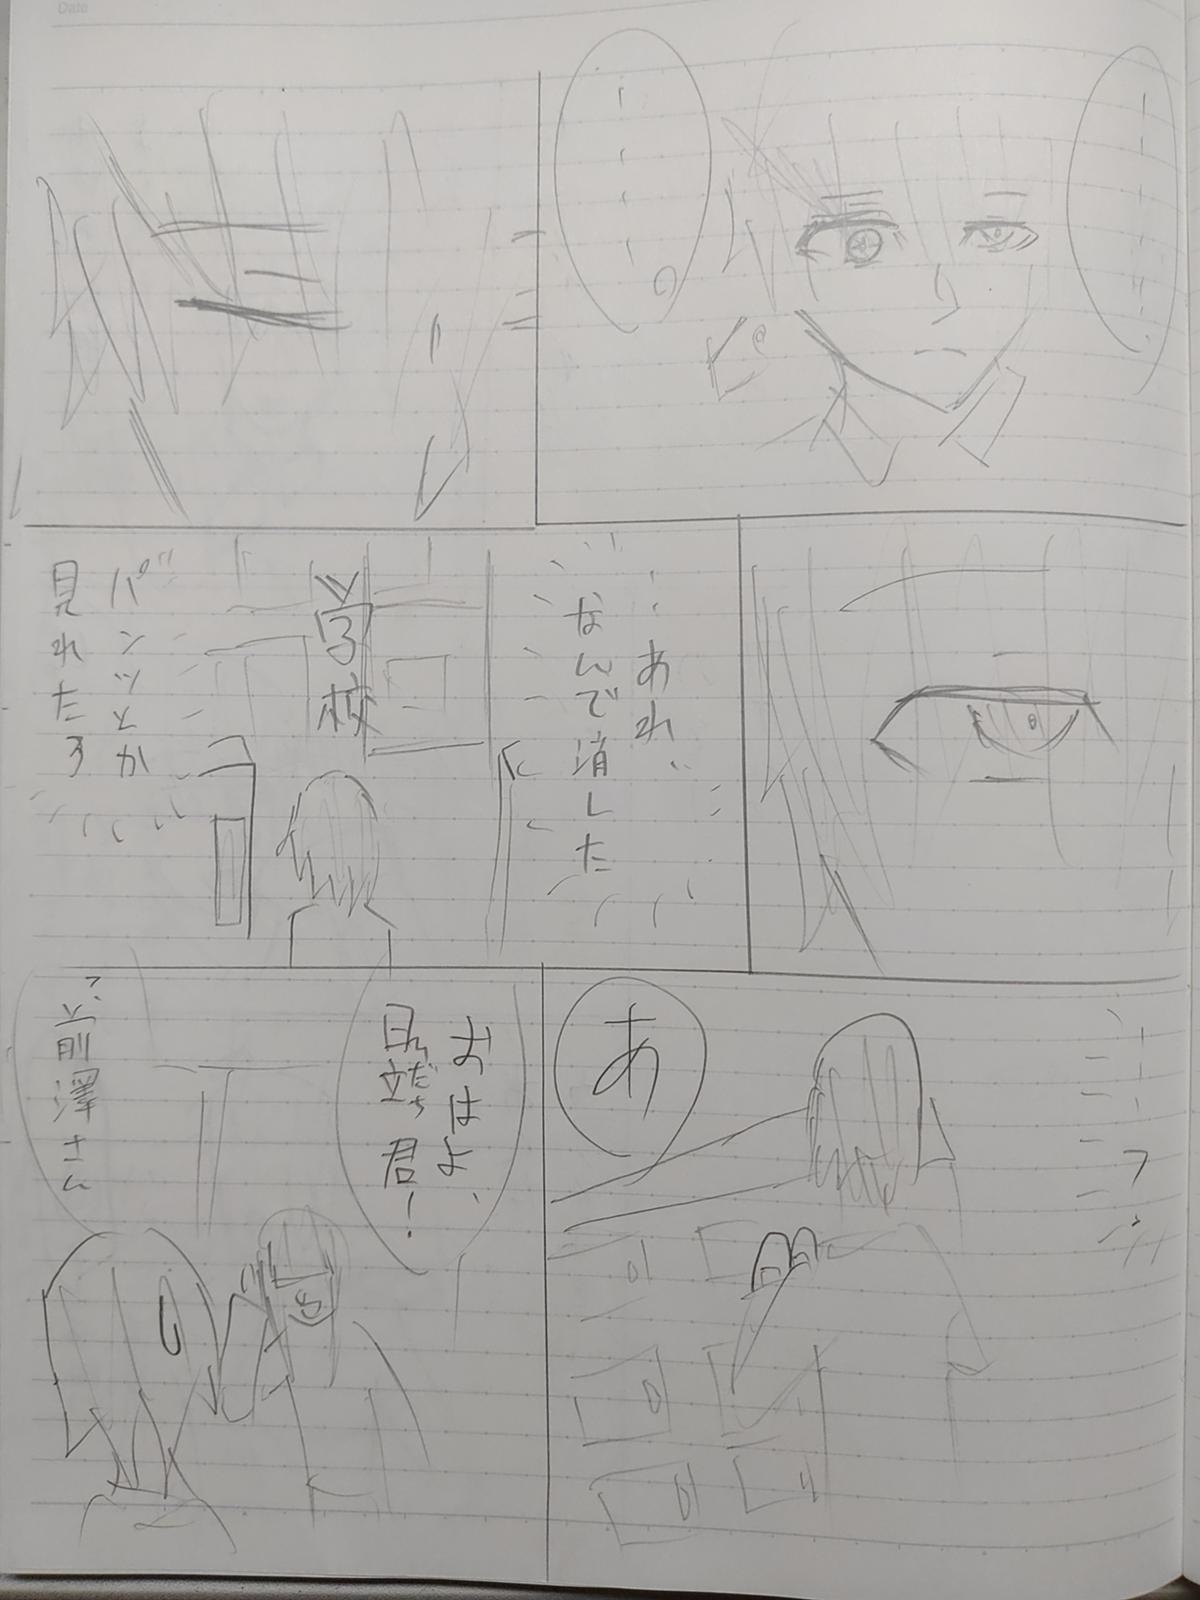 Date
あれ、
なんで消した
学校
パンツとか
見れたろ
あ
おはよ、
目立だち君！
ど、前澤さん